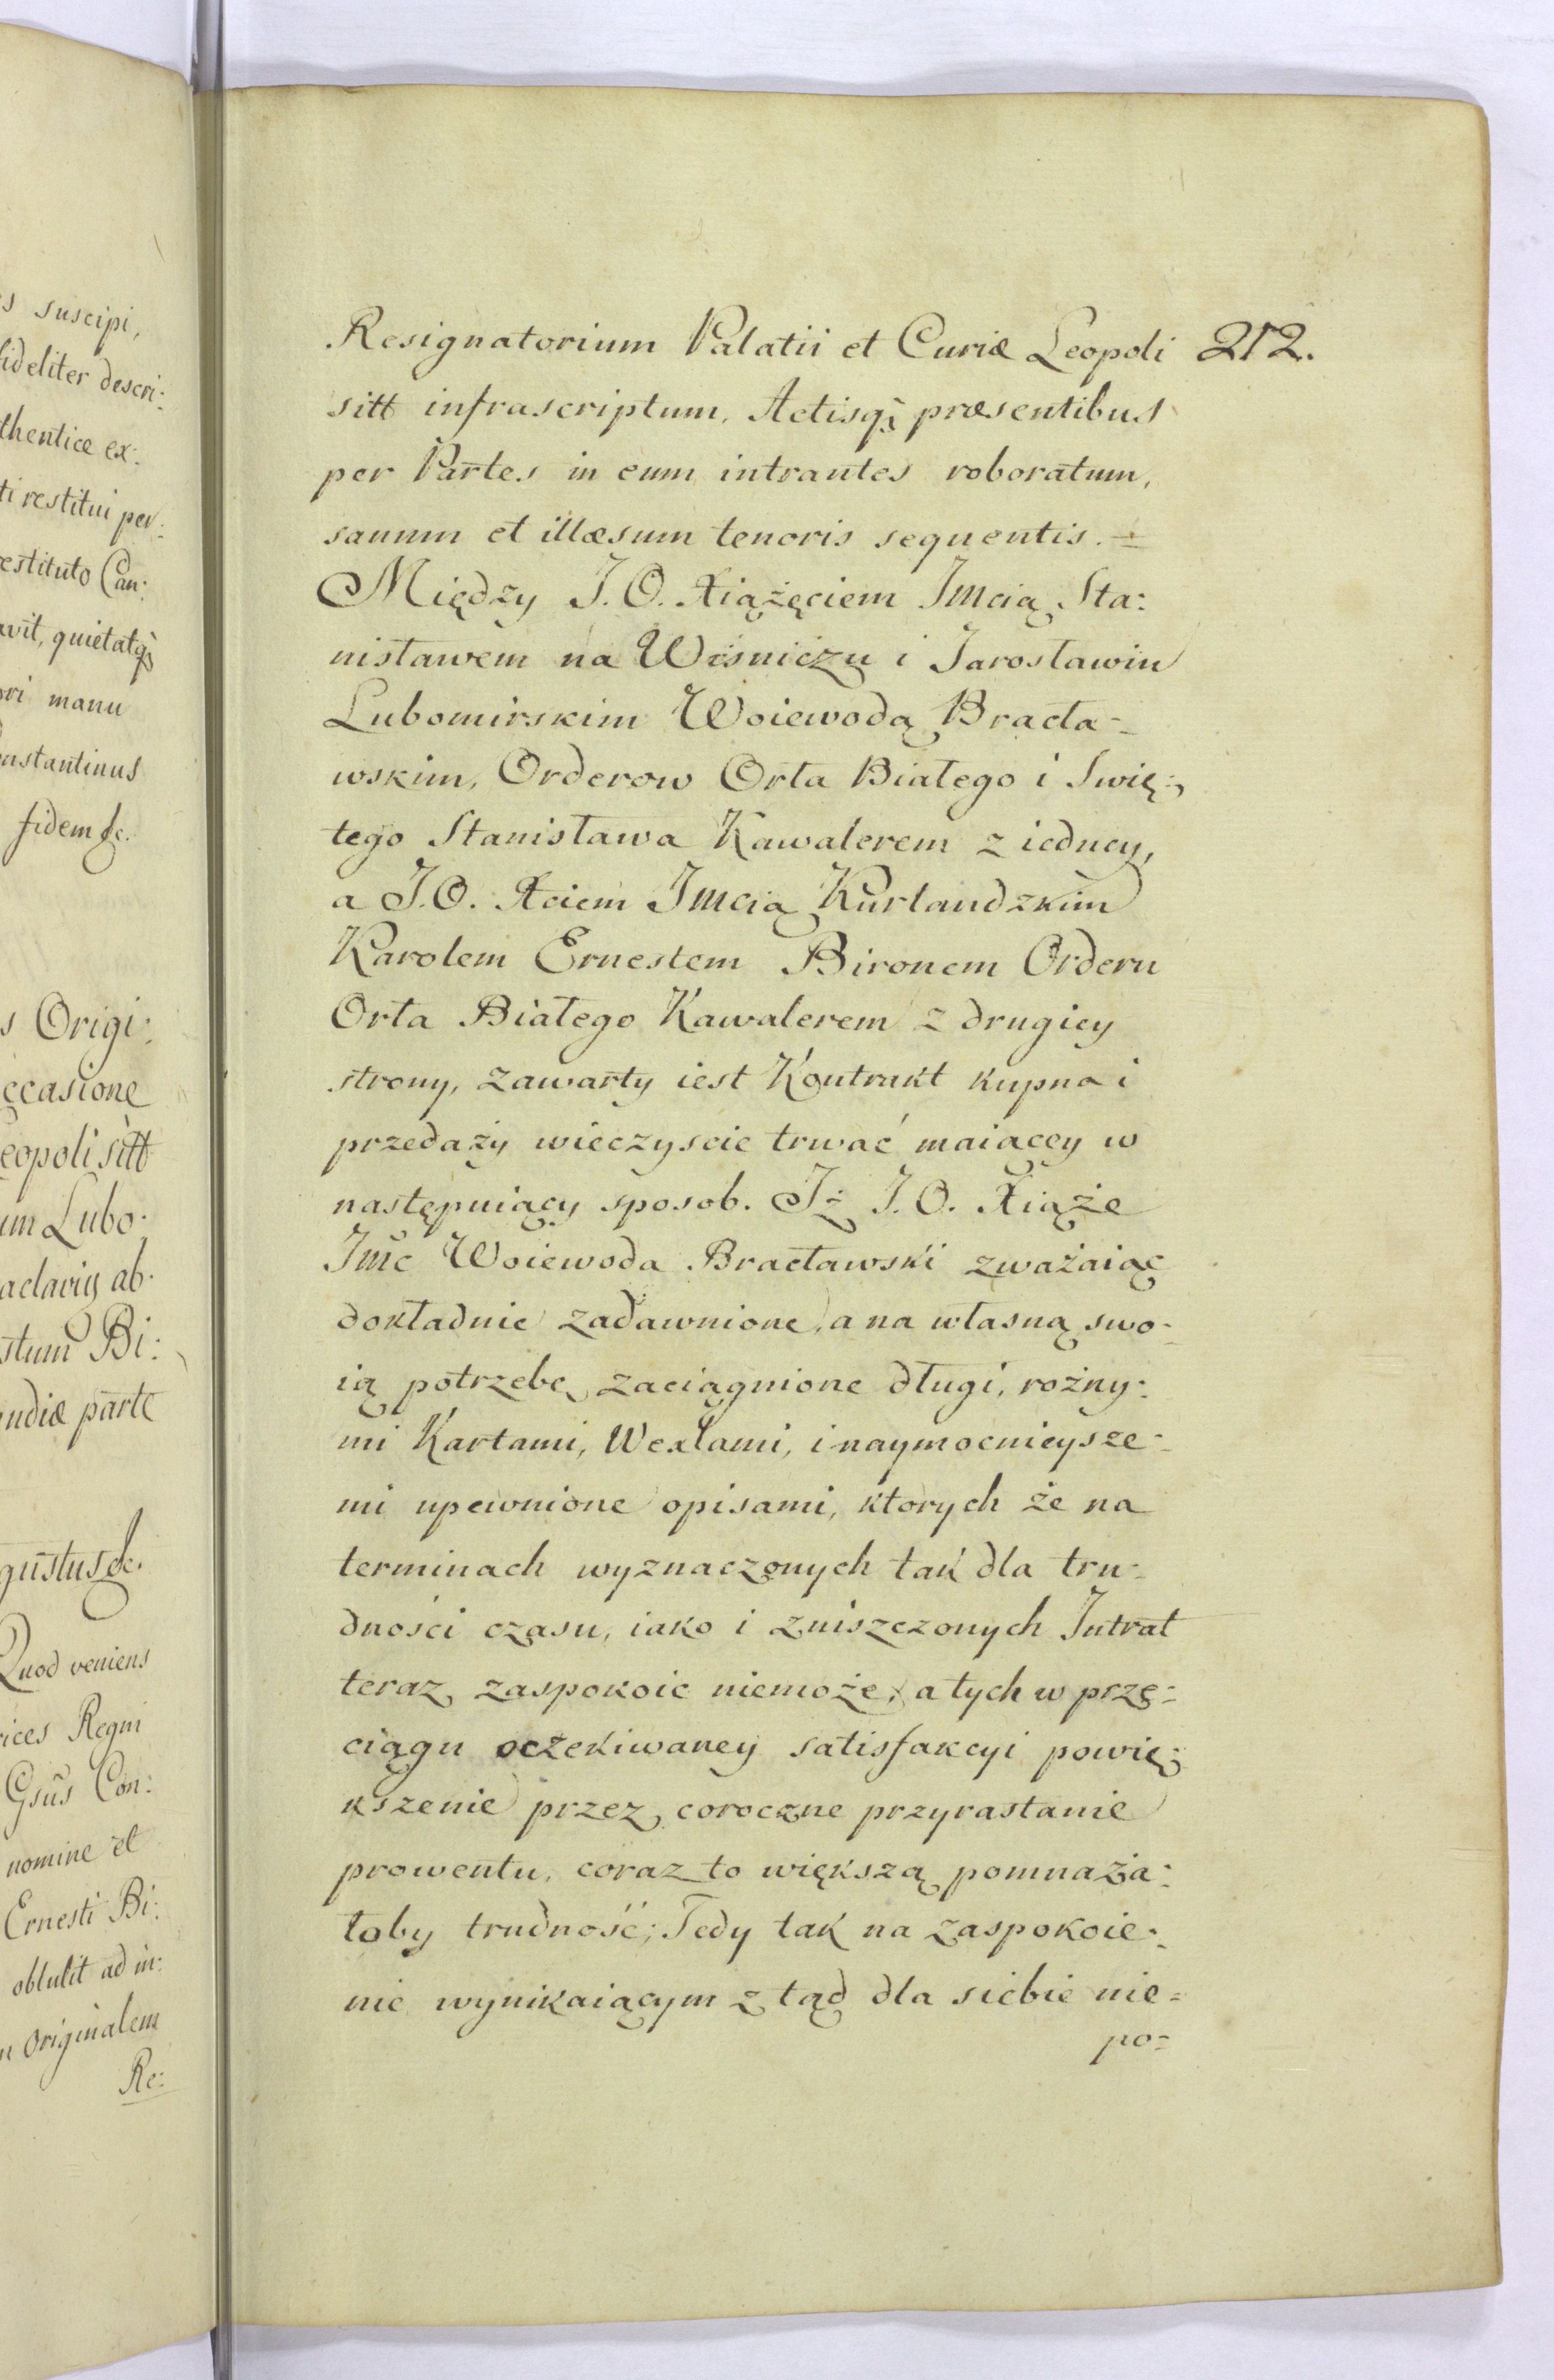 s suscipi,
fideliter descri:
thenticæ ex:
ti restitui per:
estituto Can:
avit, quietatq̃
ori manu
onstantinus
fidem &c.
s Origi:
ęcasione
eopoli sitt
um Lubo:
aclaviẏ ab:
stum Bi:
ndiæ parte
gustus &c.
Quod veniens
rices Regni
Gsũs Con:
nomine et
Ernesti Bi:
obtulit ad in:
n Originalem
Re:
Resignatorium Palatii et Curiæ Leopoli 212.
sitt infrascriptum, Actisq̃ præsentibus
per Partes in eum intrantes roboratum,
sanum et illæsum tenoris sequentis. =
Między J.O. Xiążęciem Jmcią Sta:
nisławem na Wiśniczu i Jarosławiu
Lubomirskim Woiewodą Bracła-
wskim, Orderow Orła Białego i Swię:
tego Stanisława Kawalerem z iedney,
a J.O. Xciem Jmcią Kurlandzkim
Karolem Ernestem Bironem Orderu
Orła Białego Kawalerem z drugiey
strony, zawarty iest Kontrakt kupna i
przedaży wieczyscie trwać maiącey w
następuiący sposob. Iż J.O. Xiąże
Jmć Woiewoda Bracławski zważaiąc
dokładnie zadawnione, a na własną swo-
ią potrzebę zaciągnione długi, rożny:
mi Kartami, Wexlami, i naymocnieysze-
mi upewnione opisami, ktorych że na
terminach wyznaczonych tak dla tru-
dności czasu, iako i zniszczonych Intrat
teraz zaspokoic niemoże, a tych w prze-
ciągu oczekiwaney satisfakcyi powię:
kszenie przez coroczne przyrastanie
prowentu, coraz to większą pomnaża:
łoby trudność; Tedy tak na zaspokoie:
nie wynikaiącym z tąd dla siebie nie=
po=